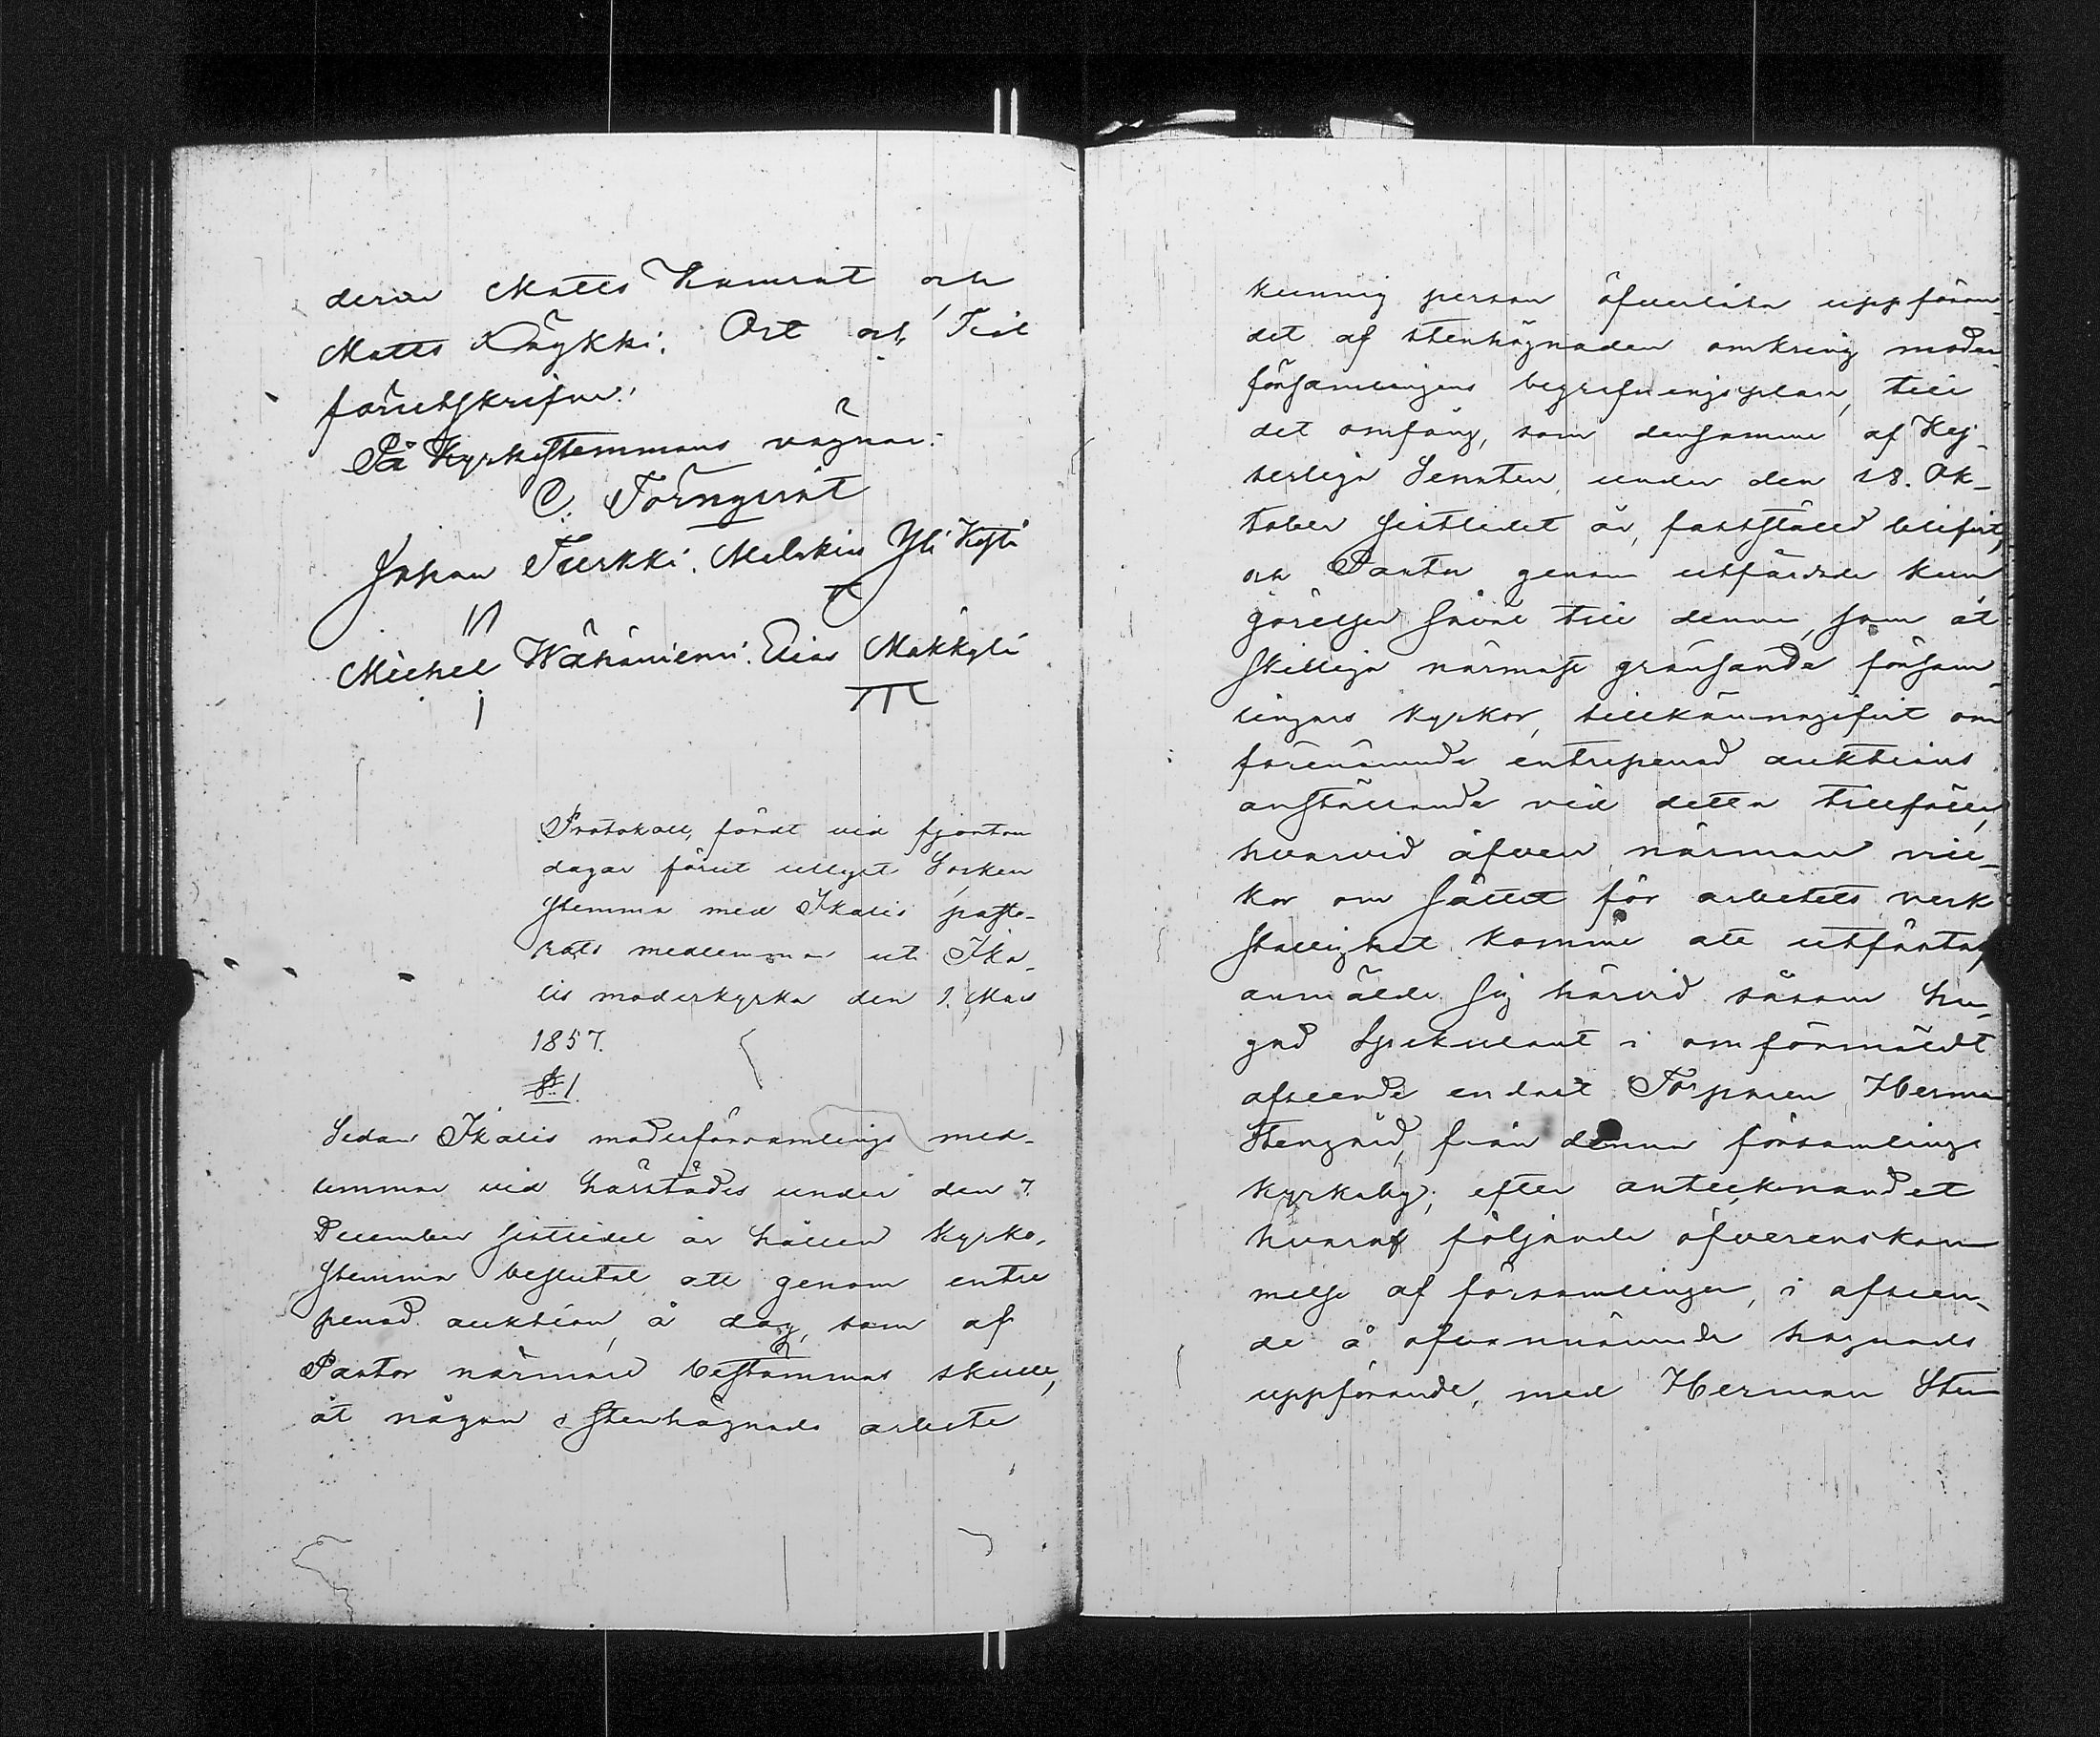 derne Matts Kamrat och
Matts Röykki. Ort och Tid
förutskrifne.
På Kyrkostemmans vägnar:
C. Törnqvist
Johan Turkki. Melskius Yli Kyhä
Michel Wähäniemi. Elias Mäkkylä
Protokoll, fördt vid fjorton
dagar förut utlyst Socken
stemma med Ikalis pasto-
rats medlemmar uti Ika-
lis moderkyrka den 1. Mars
1857.
§ 1.
Sedan Ikalis moderförsamlings med-
lemmar vid härstädes under den 7.
December sistledet år hållen Kyrko-
stemma beslutat att genom entre
penad auktion, å dag, som af
Pastor närmare bestämmas skulle,
åt någon i stenhägnads arbete
kunnig person öfverlåta uppföran-
det af stenhägnaden omkring moder
församlingens begrafningsplan, till
det omfång, som densamma af Kej-
serliga Senaten under den 28. Ok-
tober sistledet år, fastställd blifvit,
och Pastor genom utfärdade kun
görelser såväl till denna, som åt
skilliga närmast gränsande försam-
lingars kyrkor, tillkännagifvit om
förenämnde entrepenad auktions
anställande vid detta tillfälle,
hvarvid äfven närmare vill-
kor om sättet för arbetets verk
ställighet komme att utfärdas,
anmälde sig härvid såsom hu-
gad Spekulant i omförmäldt
afseende endast Torparen Herman
Stengård, från denna församlings
kyrkoby; efter antecknandet
hvaraf följande öfverenskom
melse af församlingen, i afseen-
de å ofvannämnde hägnads
uppförande, med Herman Sten